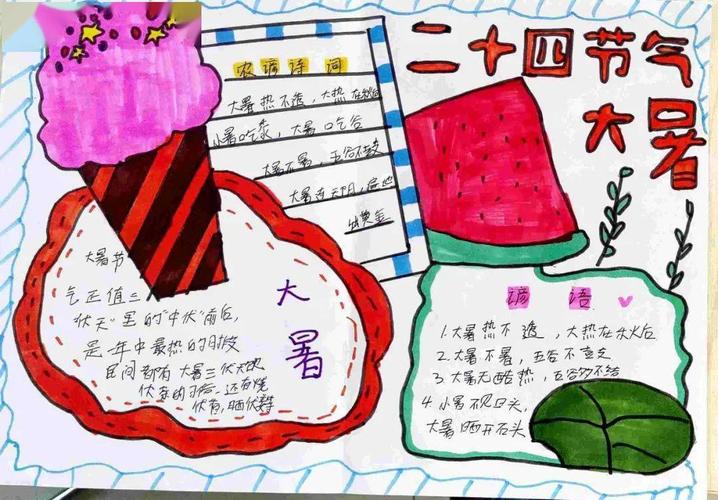 二十四节气
大暑
农谚诗词
大暑热不透，大热在秋后
小暑吃黍，大暑吃谷
大暑不暑，五谷不鼓
大暑连天阴，遍地
出黄金
大暑节
气正值三
伏天"里的"中伏"前后，
是一年中最热的时段
民间都有大暑三伏天
伏茶的习俗，还有烧
伏香，晒伏姜
大暑
谚语
1.大暑热不透，大热在秋后
2.大暑不暑，五谷不
3.大暑无酷热，五谷多不结
4.小暑不见日头，
大暑晒开石头